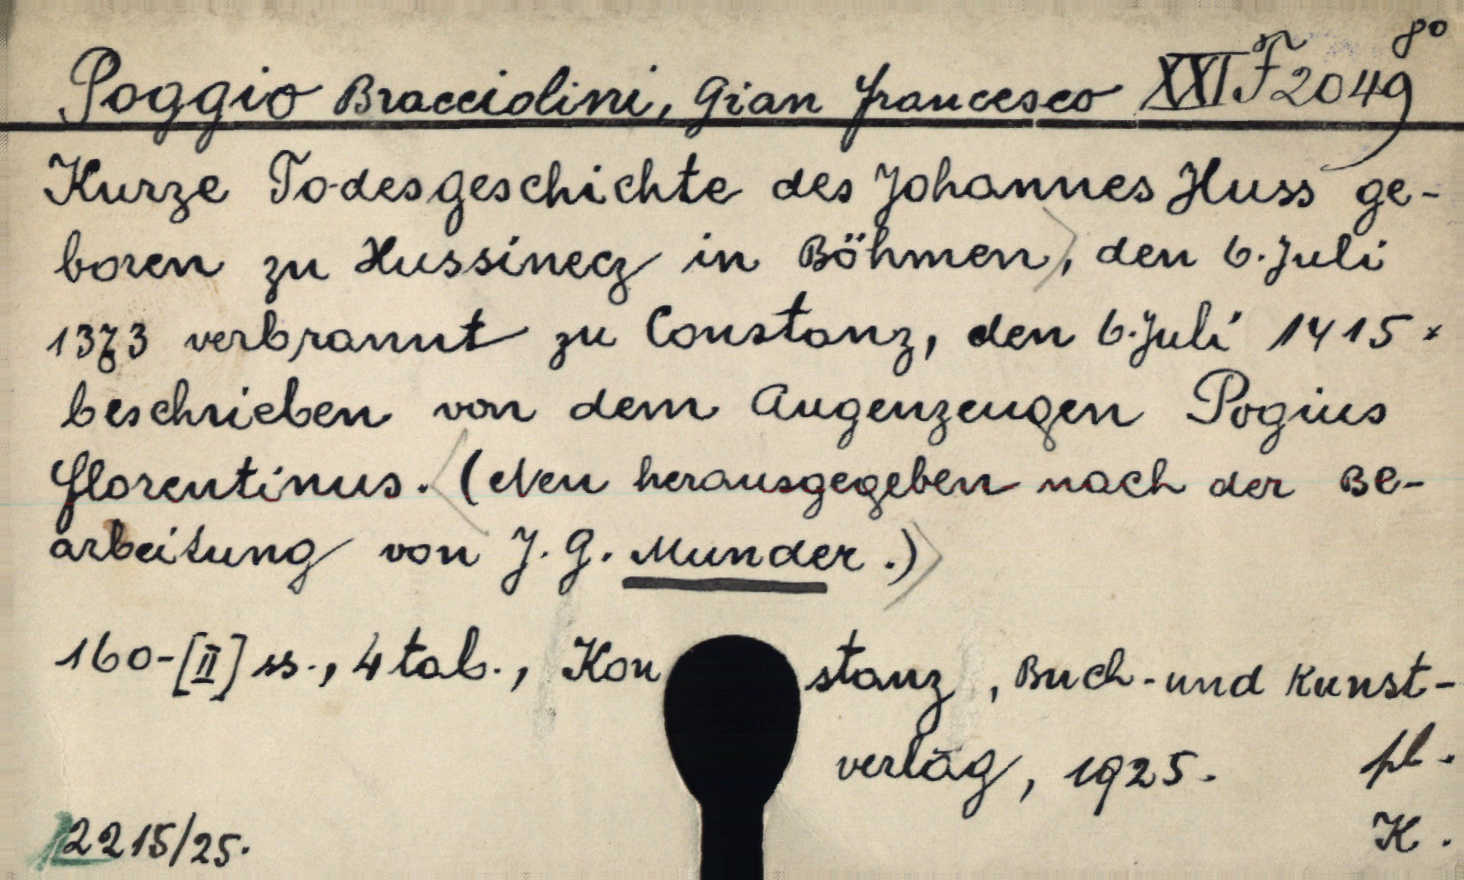 8°
Poggio Bracciolini, Gian Francesco XXI F 2049
Kurze Todesgeschichte des Johannes Huss ge-
boren zu Hussinecz in Böhmen, den 6. Juli
1373 verbrannt zu Constanz, den 6. Juli 1415 *
beschrieben von dem Augenzeugen Pogius
Florentinus. (Neu herausgegeben nach der Be-
arbeitung von J. G. Munder.)
160-[II] ss., 4 tab., Konstanz, Buch- und Kunst-
verlag, 1925. pl.
K.
2215/25.